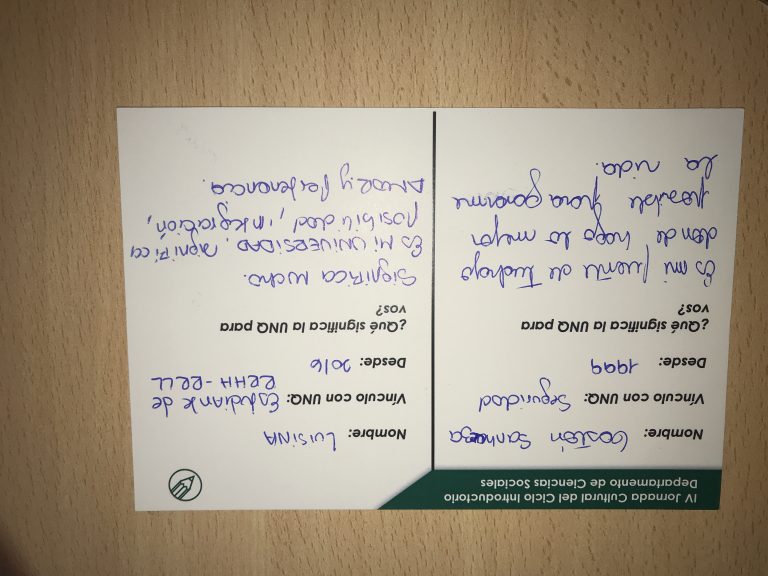 IV Jornada Cultural del Ciclo Introductorio
Departamento de Ciencias Sociales
Nombre: Gastón
Vínculo con UNQ: Seguridad
Desde: 1999
¿Qué significa la UNQ para
vos?
Es mi fuente de trabajo
donde hago lo mejor
posible para ganarme
la vida.
Nombre: LUISINA
Vínculo con UNQ: Estudiante de
RRHH - RRLL
Desde: 2016
¿Qué significa la UNQ para
vos?
SIGNIFICA MUCHO.
ES MI UNIVERSIDAD.
posibilidad, integración,
AMOR y pertenencia.